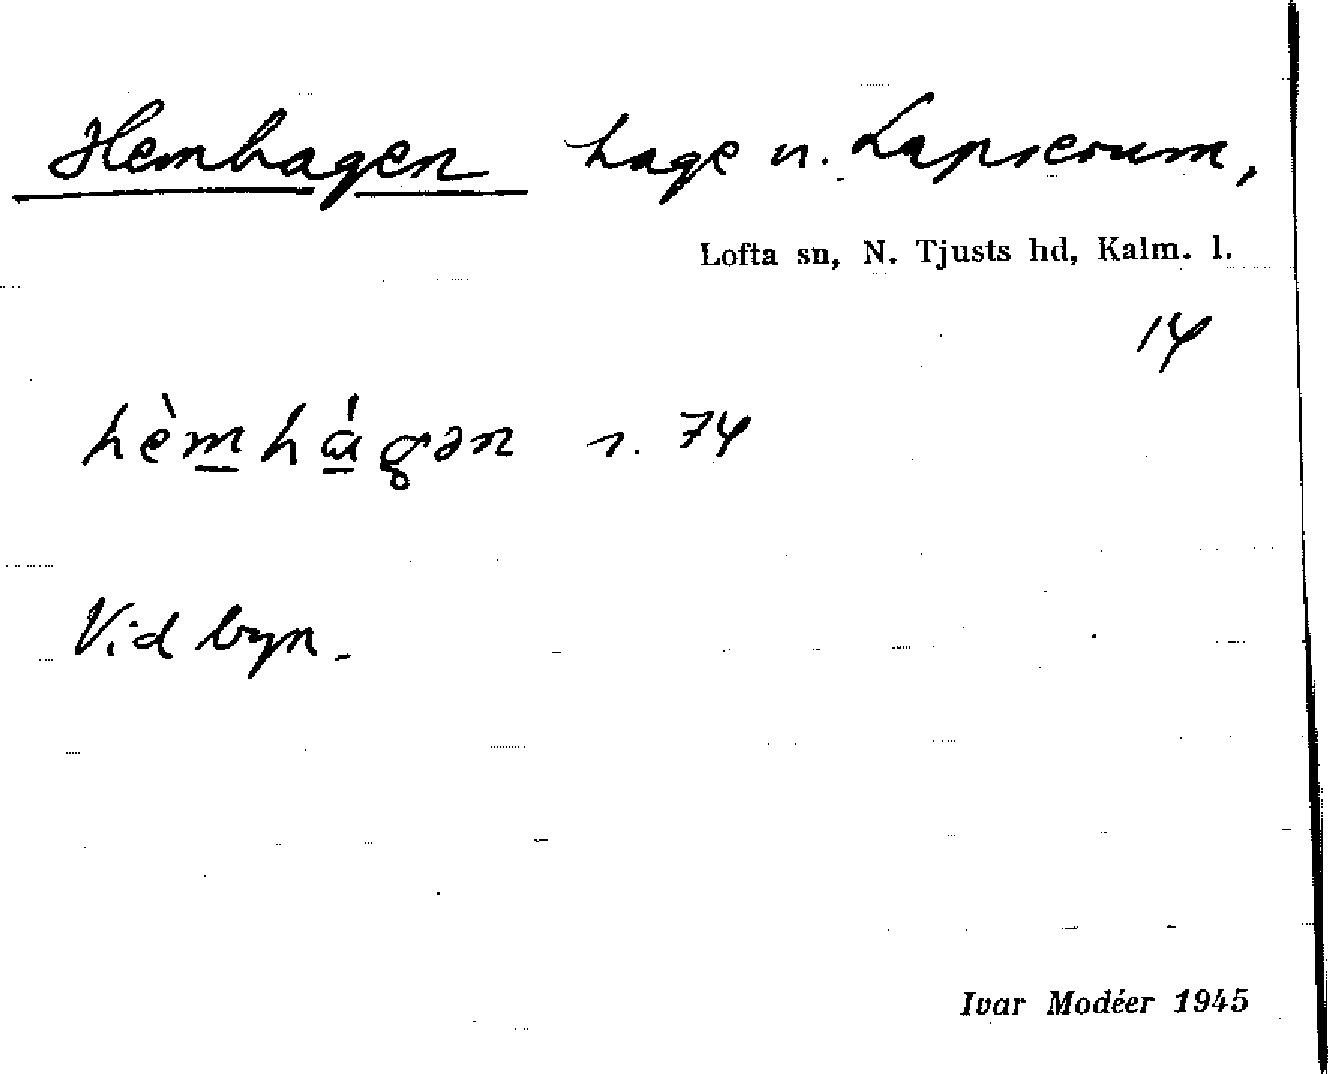 Hemhagen hage n. Lapserum,
Lofta sn, N. Tjusts hd, Kalm. l.
14
hèmhágən n. 74
Vid byn.
Ivar Modéer 1945